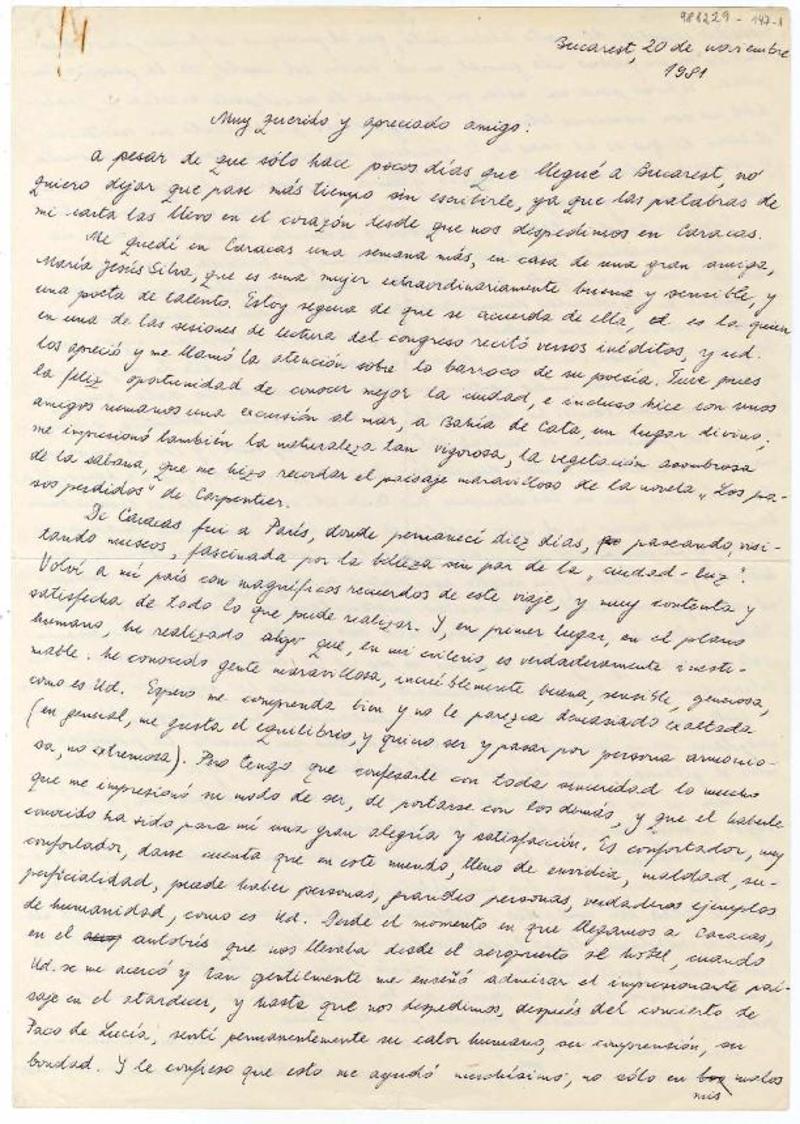 988229 - 147-1
Bucarest, 20 de noviembre
1981
Muy querido y apreciado amigo:
A pesar de que sólo hace pocos días que llegué a Bucarest, no
quiero dejar que pase más tiempo sin escribirle, ya que las palabras de
mi carta las llevo en el corazón desde que nos despedimos en Caracas.
Me quedé en Caracas una semana más, en casa de una gran amiga,
María Jesús Silva, que es una mujer extraordinariamente buena y sensible, y
una poeta de talento. Estoy segura de que se acuerda de ella, es la quien
en una de las sesiones de lectura del congreso recitó versos inéditos, y ud.
los apreció y me llamó la atención sobre lo barroco de su poesía. Tuve pues
la feliz oportunidad de conocer mejor la ciudad, e incluso hice con unos
amigos rumanos una excursión al mar, a Bahía de Cata, un lugar divino;
me impresionó también la naturaleza tan vigorosa, la vegetación asombrosa
de la sabana, que me hizo recordar el paisaje maravilloso de la novela „Los pa-
sos perdidos" de Carpentier.
De Caracas fui a París, donde permanecí diez días, paseando, visi-
tando museos, fascinada por la belleza sin par de la „ciudad-luz".
Volví a mi país con magníficos recuerdos de este viaje, y muy contenta y
satisfecha de todo lo que pude realizar. Y, en primer lugar, en el plano
humano, he realizado algo que, en mi criterio, es verdaderamente inesti-
mable: he conocido gente maravillosa, increíblemente buena, sensible, generosa,
como es Ud. Espero me comprenda bien y no le parezca demasiado exaltada
(en general, me gusta el equilibrio, y quiero ser y pasar por persona armonio-
sa, no extremosa). Pero tengo que confesarle con toda sinceridad lo mucho
que me impresionó su modo de ser, de portarse con los demás, y que el haberle
conocido ha sido para mí una gran alegría y satisfacción. Es confortador, muy
confortador, darse cuenta que en este mundo, lleno de envidia, maldad, su-
perficialidad, puede haber personas, grandes personas, verdaderos ejemplos
de humanidad, como es Ud. Desde el momento en que llegamos a Caracas,
en el autobús que nos llevaba desde el aeropuerto al hotel, cuando
Ud. se me acercó y tan gentilmente me enseñó admirar el impresionante pai-
saje en el atardecer, y hasta que nos despedimos, después del concierto de
Paco de Lucía, sentí permanentemente su calor humano, su comprensión, su
bondad. Y le confieso que esto me ayudó muchísimo, no sólo en malos
mis